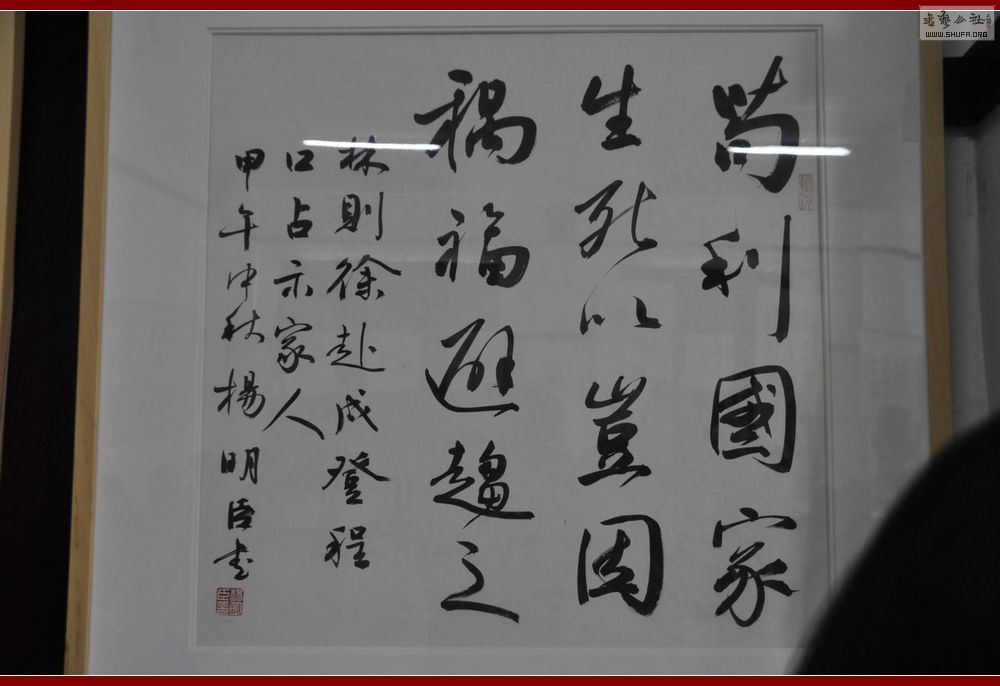 苟利國家
生死以豈因
禍福避趨之
林則徐赴戍登程
口占示家人
甲午中秋楊明臣書
WWW.SHUFA.ORG